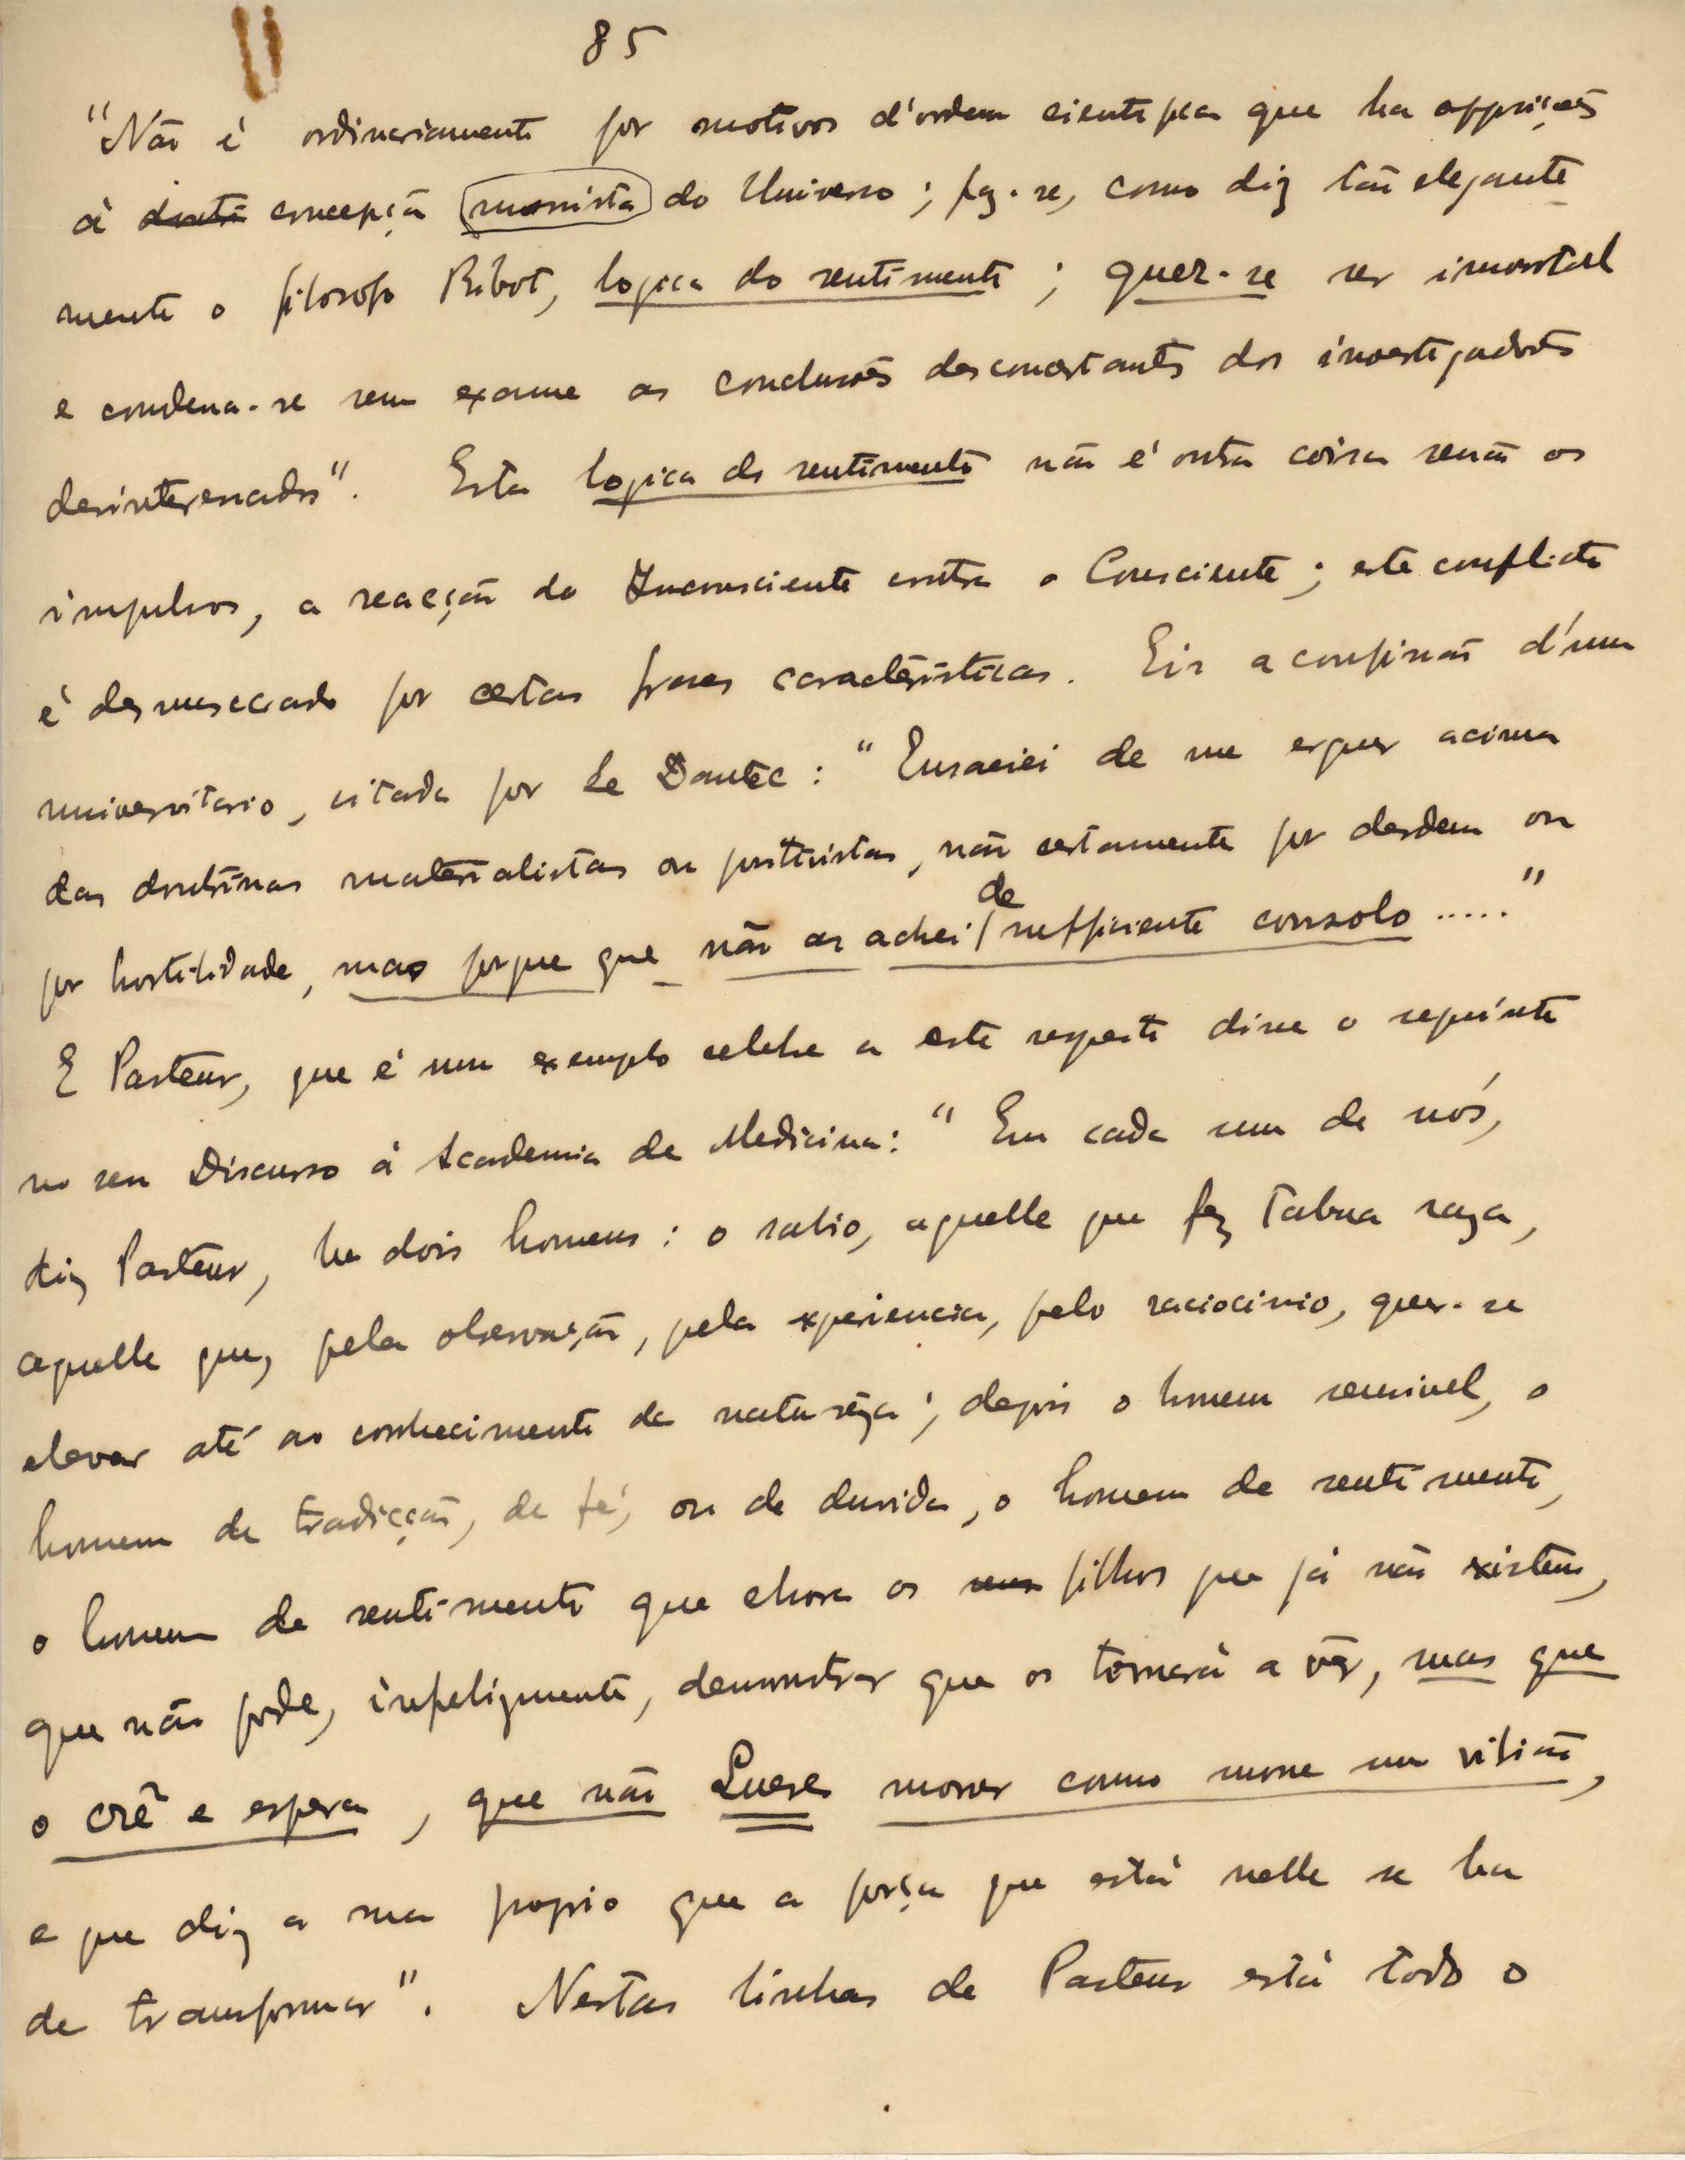 85
"Não é ordinariamente por motivos d'ordem cientifica que ha opposições
á concepção monista do Universo; faz-se, como diz tão elegante
mente o filosofo Ribot, logica do sentimento; quer-se ser immortal
e condena-se sem exame as conclusões desconcertantes dos investigadores
desinteressados". Esta logica do sentimento não é outra coisa senão os
impulsos, a reacção do Inconsciente contra o Consciente; este conflicto
é desmascarado por certas frases caracteristicas. Eis a confissão d'um
universitario, citada por Le Dantec: "Ensaiei de me erguer acima
das doutrinas materialistas ou positivistas, não certamente por desdem ou
por hostilidade, mas porque que não as achei de sufficiente consolo ....."
E Pasteur, que é um exemplo celebre a este respeito disse o seguinte
no seu Discurso á Academia de Medicina: "Em cada um de nós,
diz Pasteur, ha dois homens: o sabio, aquelle que fez tabua raza,
aquelle que, pela observação, pela experiencia, pelo raciocinio, quer-se
elevar até ao conhecimento da natureza; depois o homem sensivel, o
homem de tradicção, de fé, ou de duvida, o homem de sentimento,
o homem de sentimento que chora os seus filhos que já não existem,
que não pode, infelizmente, demonstrar que os tornará a vêr, mas que
o crê e espera, que não Quere morrer como morre um vibrião,
e que diz a si proprio que a força que está nelle se ha
de transformar". Nestas linhas de Pasteur está todo o